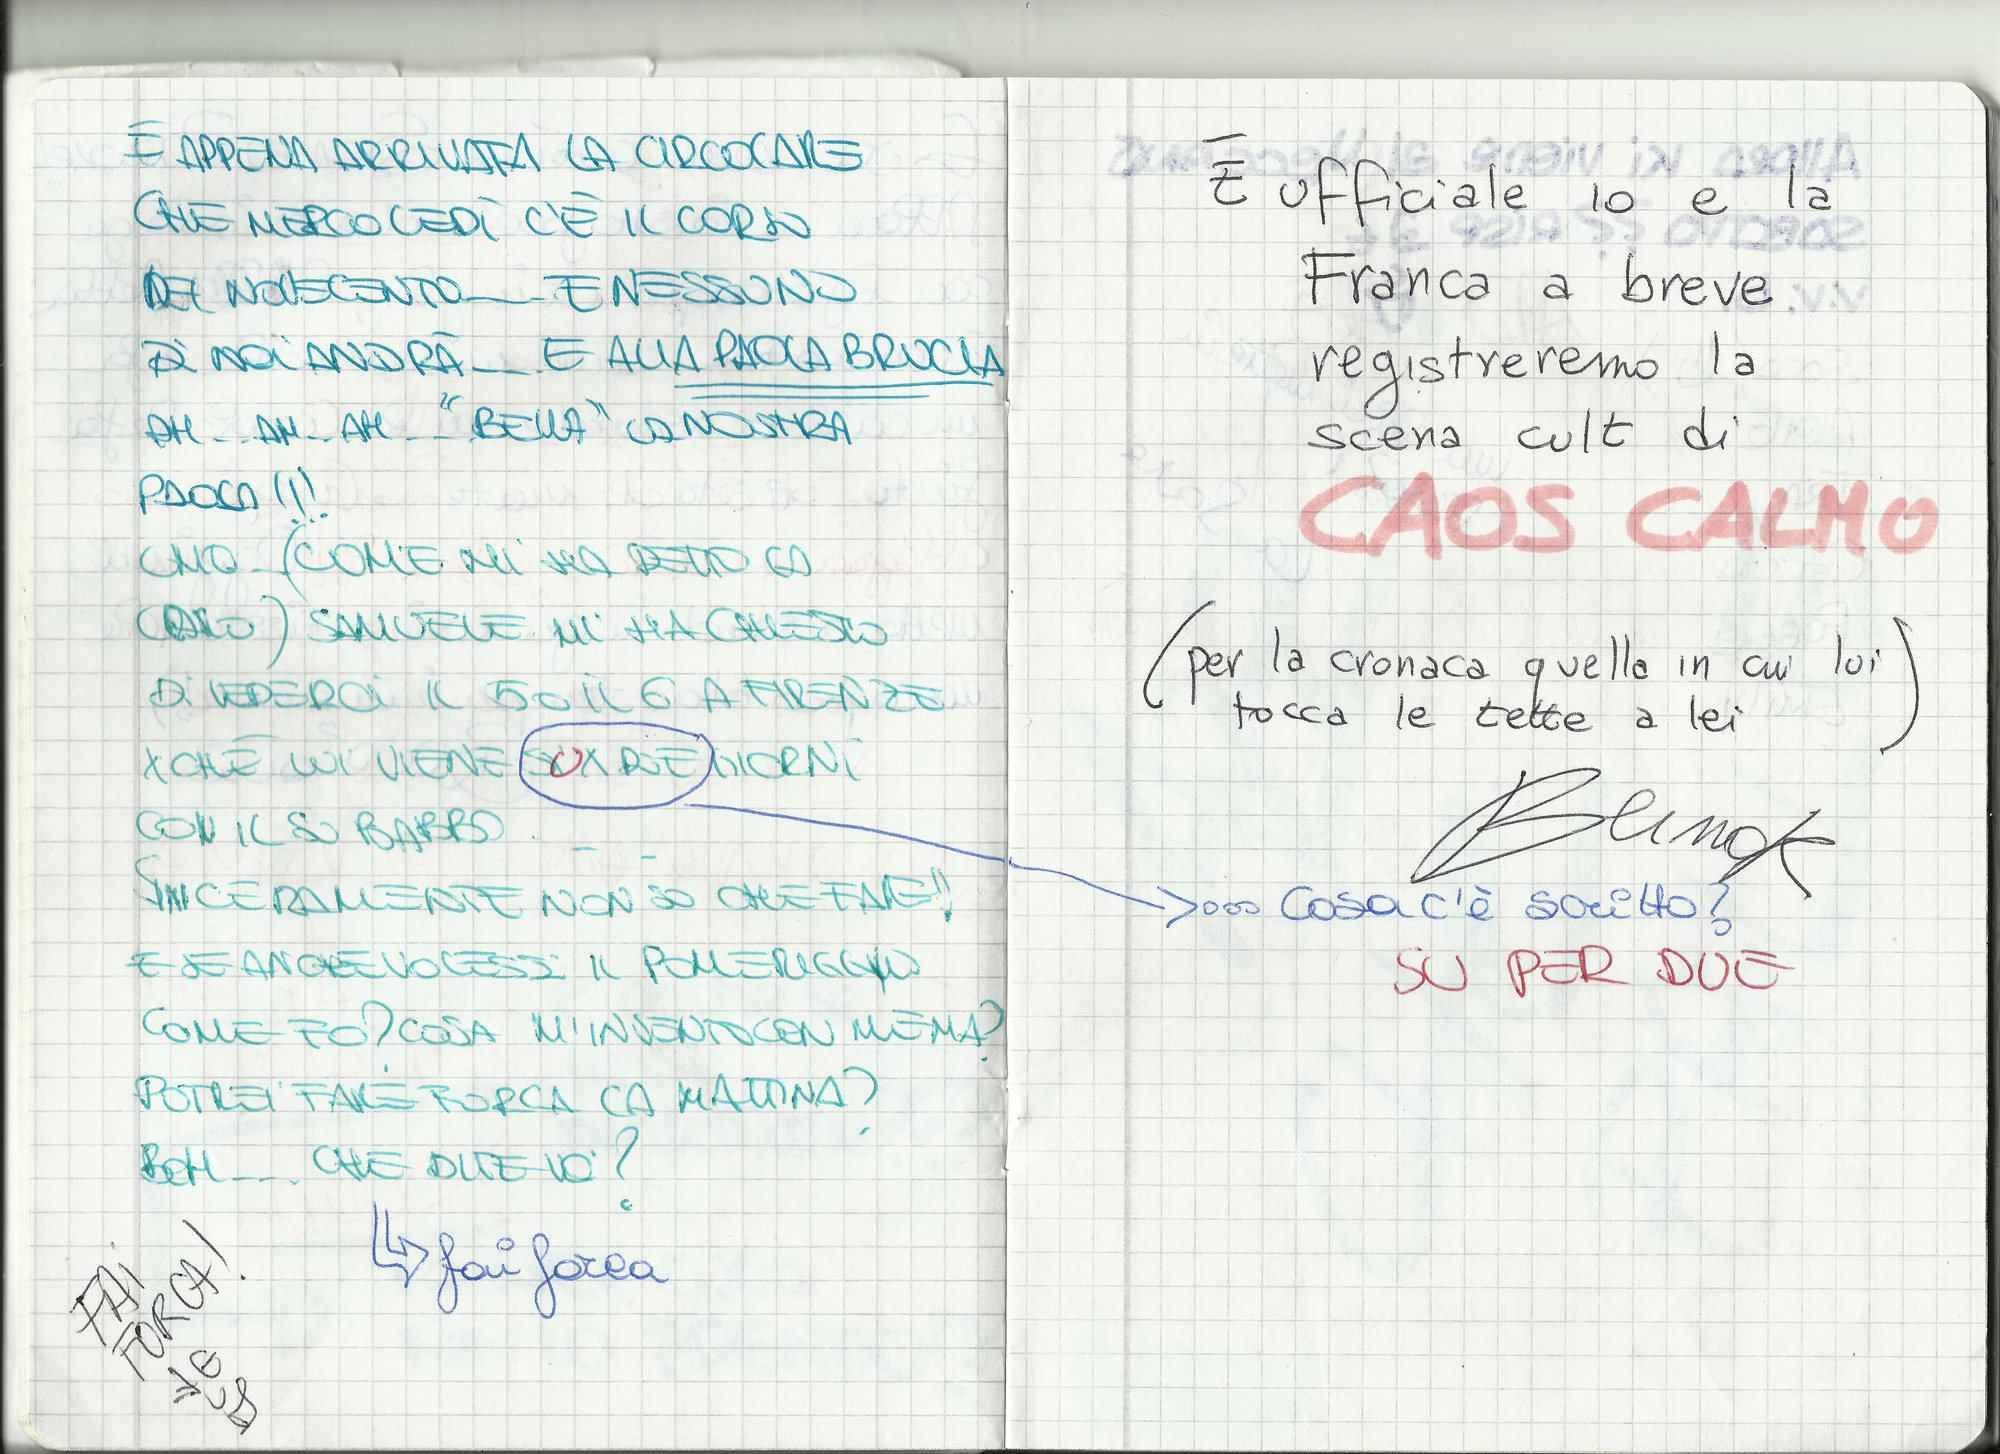 È APPENA ARRIVATA LA CIRCOLARE
CHE MERCOLEDÌ C'È IL CORSO
DEL NOVECENTO___ E NESSUNO
DI NOI ANDRÀ___ E ALLA PAOLA BRUCIA
AH__AH_AH_ "BELLA" LA NOSTRA
PAOLA!!!
CMQ_(COME MI HA DETTO LA
) SAMUELE MI HA CHIESTO
DI VEDERCI IL 5 O IL 6 A FIRENZE
XCHÉ LUI VIENE SU X DUE GIORNI
CON IL SU BABBO_ _ _
SINCERAMENTE NON SO CHE FARE!!
E SE ANCHE VOLESSI IL POMERIGGIO
COME FO? COSA M'INVENTO CON MEMA?
POTREI FARE FORCA LA MATTINA?
BOH___. CHE DITE VOI?
fai forca
FAI
FORCA!
È ufficiale io e la
Franca a breve
registreremo la
scena cult di
CAOS CALMO
(per la cronaca quella in cui lui
tocca le tette a lei)
ooo Cosa c'è scritto?
SU PER DUE